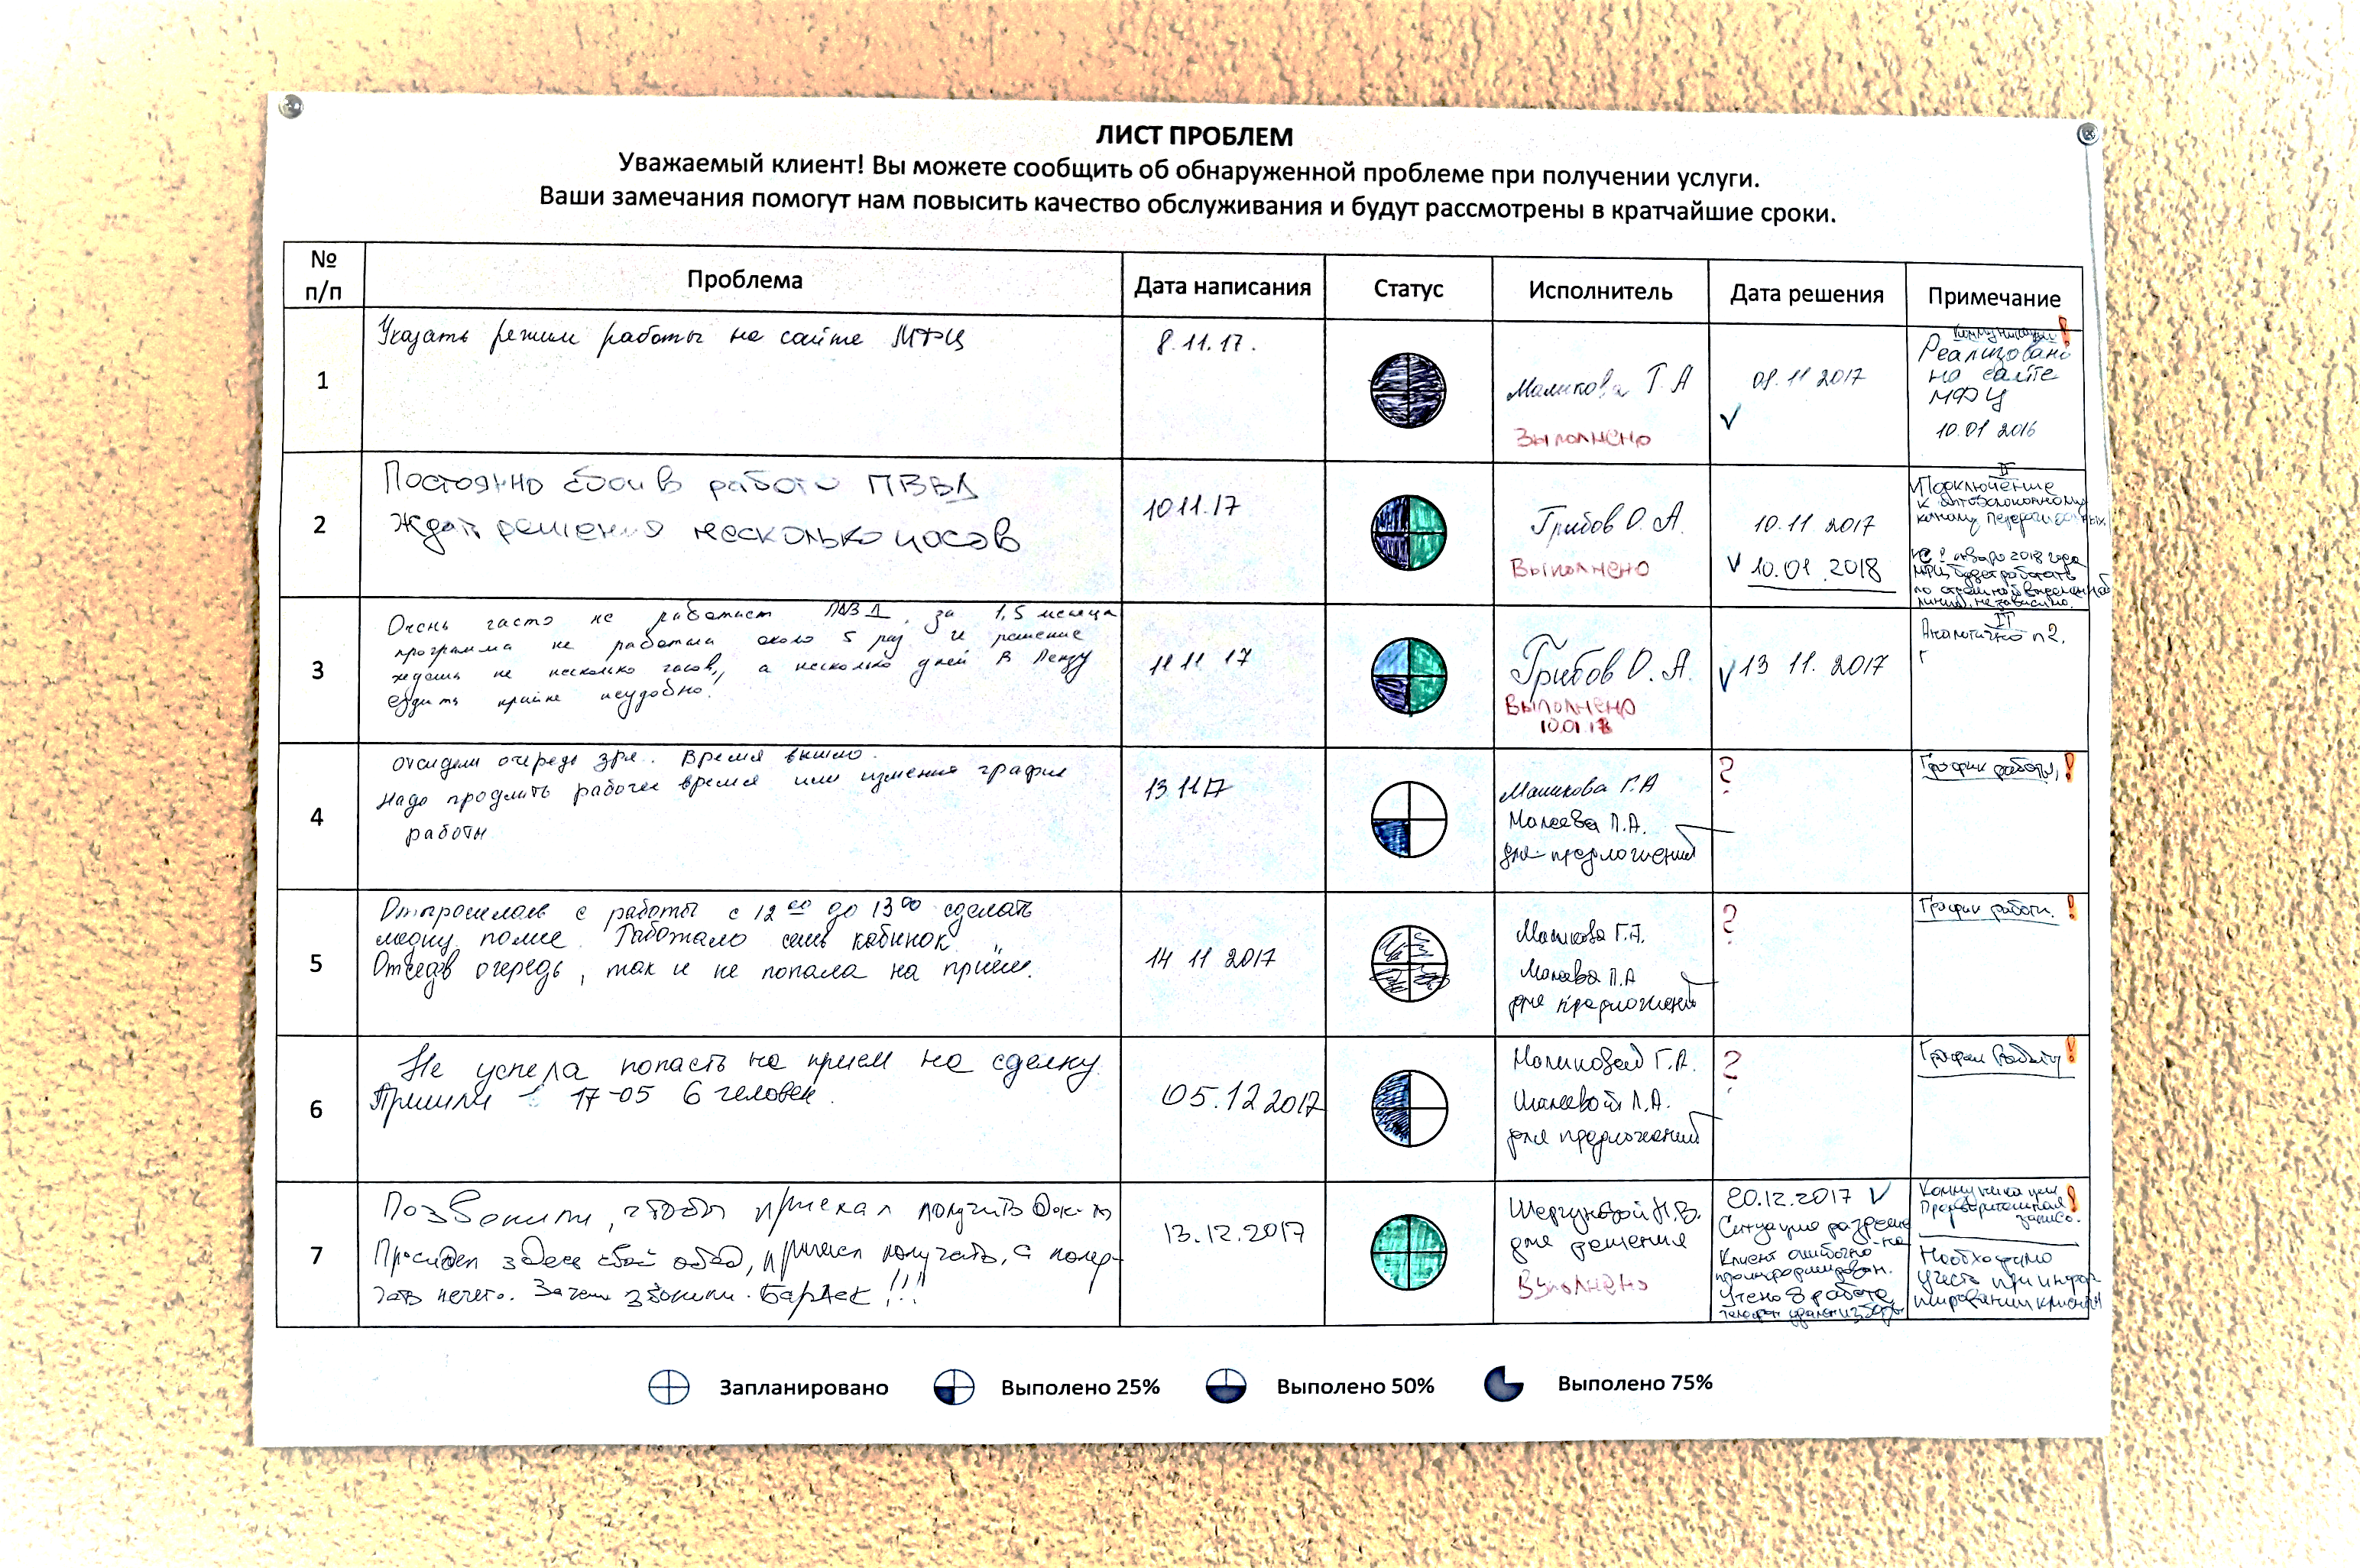 ЛИСТ ПРОБЛЕМ
Уважаемый клиент! Вы можете сообщить об обнаруженной проблеме при получении услуги.
Ваши замечания помогут нам повысить качество обслуживания и будут рассмотрены в кратчайшие сроки.
№ п/п
Проблема
Дата написания
Статус
Исполнитель
Дата решения
Примечание
1
Указать режим работы на сайте МФЦ
8.11.17.
Маликова Г.А
Выполнено
08.11 2017
Реализовано
на сайте
МФЦ
10.01 2016
2
Постоянно сбои в работе ПВВД
Ждать решения несколько часов
10 11.17
Грибов О.А.
Выполнено
10.11 2017
10.01.2018
II
Подключение
3
Очень часто не работает за 1,5 месяца
программа не работала около 5 раз и решение
ждешь не несколько часов, а несколько дней В Пензу
ездить крайне неудобно.
11 11 17
Грибов О.А.
Выполнено
10.01.18
13 11. 2017
II
Аналогично п2.
4
отсидели очередь зря.. Время вышло.
Надо продлить рабочее время или изменить график
работы
13 11 17
Маликова Г.А
Малеева Л.А.
для предложений
?
График работы, !
5
Отпросилась с работы с 12 00 до 13 00 сделать
Работало семь кабинок
Отсидев очередь, так и не попала на приём.
14 11 2017
Маликова Г.А.
Малеева Л.А
для предложений
?
График работы. !
6
Не успела попасть на прием на сделку.
Пришли 17-05 6 человек.
05.12 2017
Маликовой Г.А.
Малеевой Л.А.
для предложений
?
График работы !
7
Позвонили, чтобы приехал получить док-ты
Просидел здесь свой обед, пришел получать, а полу-
чать нечего. Зачем звонили. Бардак!!!
13.12.2017
Шергуновой Н.В.
для решения
Выполнено
20.12.2017
Ситуация разреше
-на
Клиент ошибочно
проинформирован.
Учено в работе
Коммуникации !
Предварительная
запись.
Необходимо
учесть при инфор
мировании клиента
Запланировано
Выполено 25%
Выполено 50%
Выполено 75%